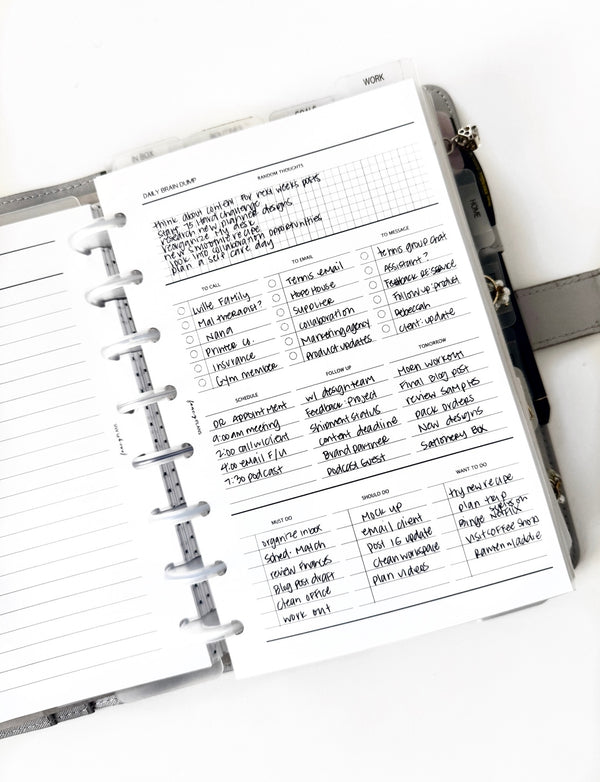 WORK
IN BOX
HOME
DAILY BRAIN DUMP
RANDOM THOUGHTS
think about content for next weeks posts
start 75 Hard challenge
research new planner designs
reorganize my desk
new smoothie recipe
look into collaboration opportunities
plan a self care day
TO CALL
Lville Family
Mal therapist?
Nana
Printer Co.
Insurance
Gym member
TO EMAIL
Tennis email
Hope House
Supplier
Collaboration
Marketing agency
Product updates
TO MESSAGE
tennis group chat
Assistant?
Feedback RE: Service
Follow up: product
Rebeccah
Client: update
SCHEDULE
DR APPOINTMENT
9:00 am meeting
2:00 call w/client
4:00 email F/U
7:30 podcast
FOLLOW UP
w/ design team
Feedback: Project
Shipment status
content deadline
Brand partner
Podcast Guest
TOMORROW
Morn workout
Final Blog post
review samples
pack orders
New designs
Stationery Box
MUST DO
organize inbox
sched. Match
review finances
Blog post draft
clean office
work out
SHOULD DO
Mock up
email client
post IG update
clean workspace
plan videos
WANT TO DO
try new recipe
plan trip
Binge Netflix
visit coffee shop